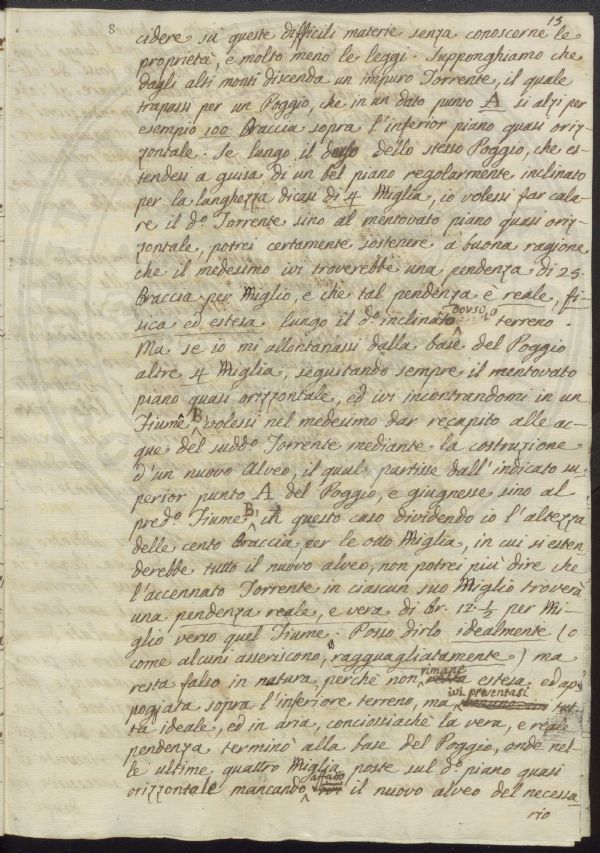 8
13
cidere sù queste difficili materie senza conoscerne le
proprietà, e molto meno le leggi. Supponghiamo che
dagli alti monti discenda un impuro Torrente, il quale
trapassi per un Poggio, che in un dato punto A si alzi per
esempio 100 Braccia sopra l'inferior piano quasi oriz-
zontale. Se lungo il dorso dello stesso Poggio, che es-
tendesi a guisa di un bel piano regolarmente inclinato
per la lunghezza dicasi di 4 Miglia, io volessi far cala-
re il d.º Torrente sino al mentovato piano quasi oriz-
zontale, potrei certamente sostenere a buona ragione
che il medesimo ivi troverebbe una pendenza di 25
Braccia per Miglio, e che tal pendenza è reale, fi-
sica ed estesa lungo il d.º inclinato terreno.
Ma se io mi allontanassi dalla base del Poggio
altre 4 Miglia, seguitando sempre il mentovato
piano quasi orizzontale, ed ivi incontrandomi in un
Fiume B, volessi nel medesimo dar recapito alle ac-
que del sudd.º Torrente mediante la costruzione
d'un nuovo Alveo, il qual partisse dall'indicato su-
perior punto A del Poggio, e giugnesse sino al
pred.º Fiume B, in questo caso dividendo io l'altezza
delle cento Braccia per le otto Miglia, in cui si esten-
derebbe tutto il nuovo alveo, non potrei più dire che
l'accennato Torrente in ciascun suo Miglio troverà
una pendenza reale, e vera di Br. 12 1/2 per Mi-
glio verso quel Fiume. Posso dirlo idealmente (o
come alcuni asseriscono, ragguagliatamente) ma
resta falso in natura perchè non rimane estesa, ed ap-
poggiata sopra l'inferiore terreno, ma ivi presentasi tut-
ta ideale, ed in aria, conciossiachè la vera, e reale
pendenza terminò alla base del Poggio, onde nel-
le ultime quattro Miglia poste sul d.º piano quasi
orizzontale mancando affatto il nuovo alveo del necessa-
rio